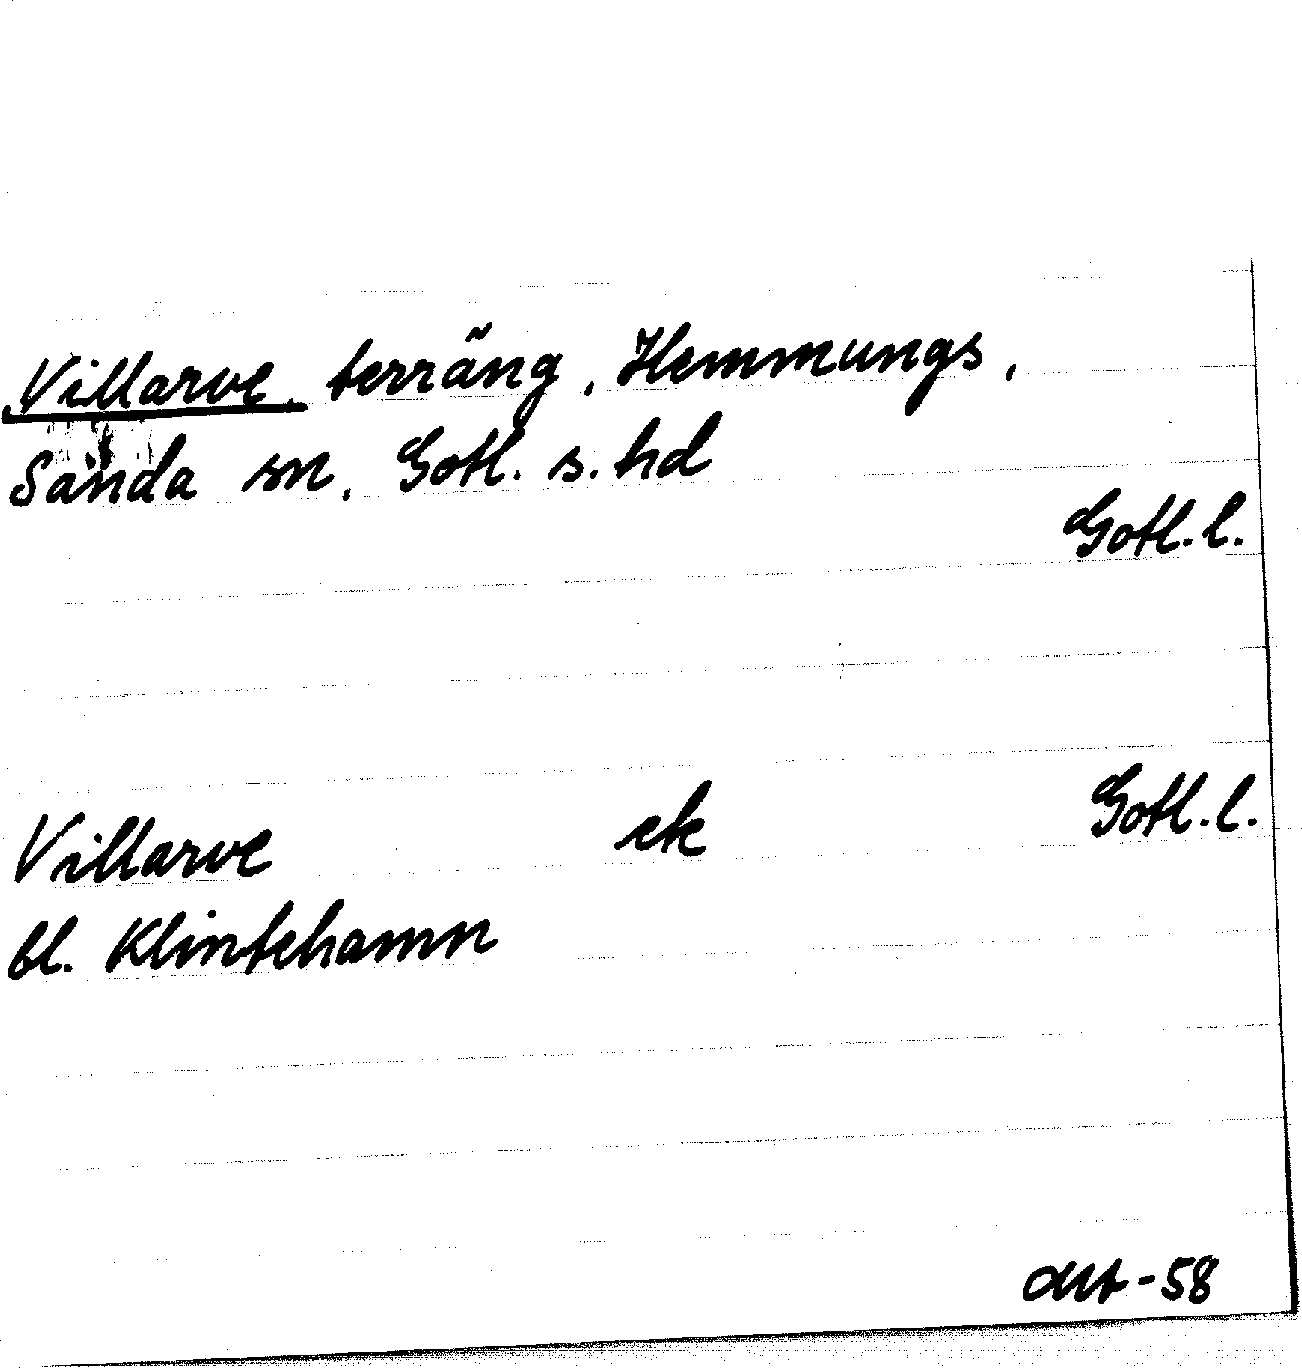 Villarve, terräng, Hemmungs,
Sanda sn, Gotl. s. hd
Gotl. l.
Villarve ek Gotl. l.
bl. Klintehamn
-58